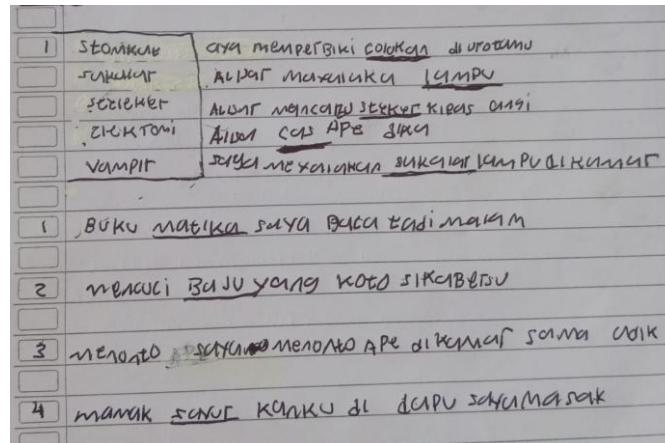 1 stomkue aya memperbiki colokan di urotamu
sukular Alpar maxalaku lampu
stzieker Alpar mancabu steker kipas angi
ziektomi Alpar cas APe dika
vampir saya mexalakan sukalar lampu di kamar
1 Buku matika saya Baca tadi malam
2 mencuci Baju yang koto sikabersu
3 menonto saya menonto APe di kamar sama adik
4 mamak sayur kanku di dapu saya masak